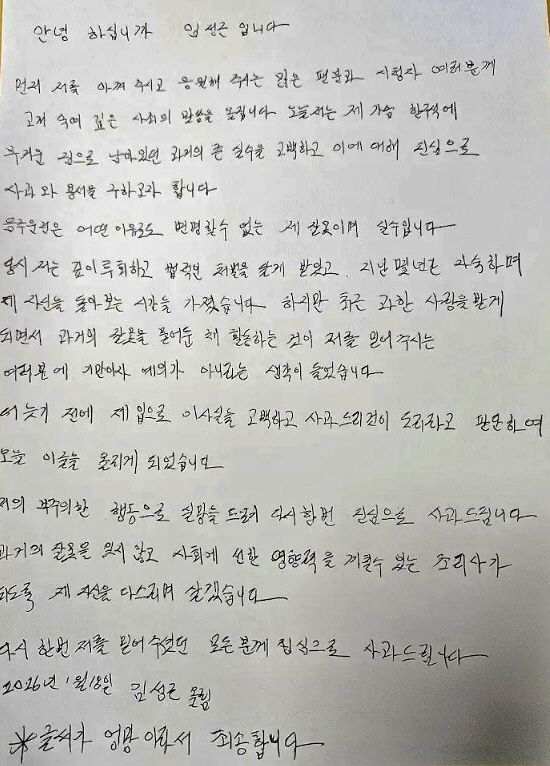 안녕 하십니까 임성근 입니다
먼저 저를 아껴 주시고 응원해 주시는 많은 팬분과 시청자 여러분께
고개 숙여 깊은 사죄의 말씀을 올립니다 오늘 저는 제 가슴 한구석에
무거운 짐으로 남아있던 과거의 큰 실수을 고백하고 이에 대해 진심으로
사과와 용서를 구하고자 합니다
음주운전은 어떤 이유로도 변명할수 없는 제 잘못이며 실수입니다
당시 저는 깊이 후회하고 법적인 처벌을 달게 받았고, 지난 몇년간 자숙하며
제 자신을 돌아보는 시간을 가졌습니다 하지만 최근 과한 사랑을 받게
되면서 과거의 잘못을 묻어둔 채 활동하는 것이 저를 믿어주시는
여러분에 기만이자 예의가 아니라는 생각이 들었습니다
더 늦기 전에 제 입으로 이사실을 고백하고 사과드리것이 도리라고 판단하여
오늘 이글을 올리게 되었습니다
저의 부주의한 행동으로 실망을 드려 다시한번 진심으로 사과드립니다
과거의 잘못을 잊지 않고 사회에 선한 영향력을 끼칠수 있는 조리사가
되도록 제 자신을 다스리며 살겠습니다
다시 한번 저를 믿어주셨던 모든 분께 진심으로 사과드립니다
2026년 1월 18일 임성근 올림
※글씨가 엉망이라서 죄송합니다